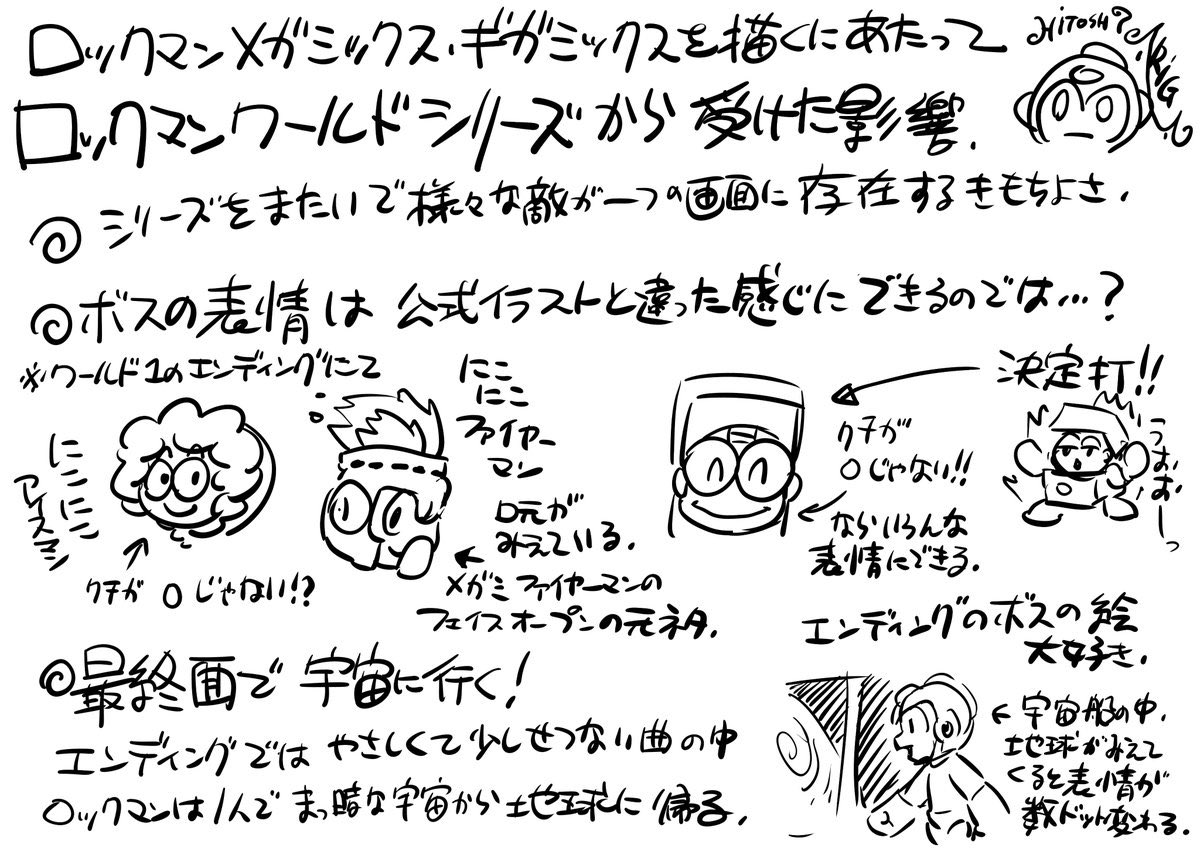 ロックマンメガミックス・ギガミックスを描くにあたって
HITOSHI
ロックマンワールドシリーズから受けた影響.
◎シリーズをまたいで様々な敵が一つの画面に存在するきもちよさ.
◎ボスの表情は公式イラストと違った感じにできるのでは…?
※ワールド1のエンディングにて
にこ
にこ
アイスマン
クチが〇じゃない!?
にこ
にこ
ファイヤー
マン
口元が
みえている.
メガミファイヤーマンの
フェイスオープンの元ネタ.
決定打!!
クチが
〇じゃない!!
ならいろんな
表情にできる.
うおおーっ
エンディングのボスの絵
大好き.
◎最終面で宇宙に行く!
エンディングではやさしくて少しせつない曲の中
ロックマンは1人でまっ暗な宇宙から地球に帰る.
←宇宙船の中.
地球がみえて
くると表情が
数ドット変わる.